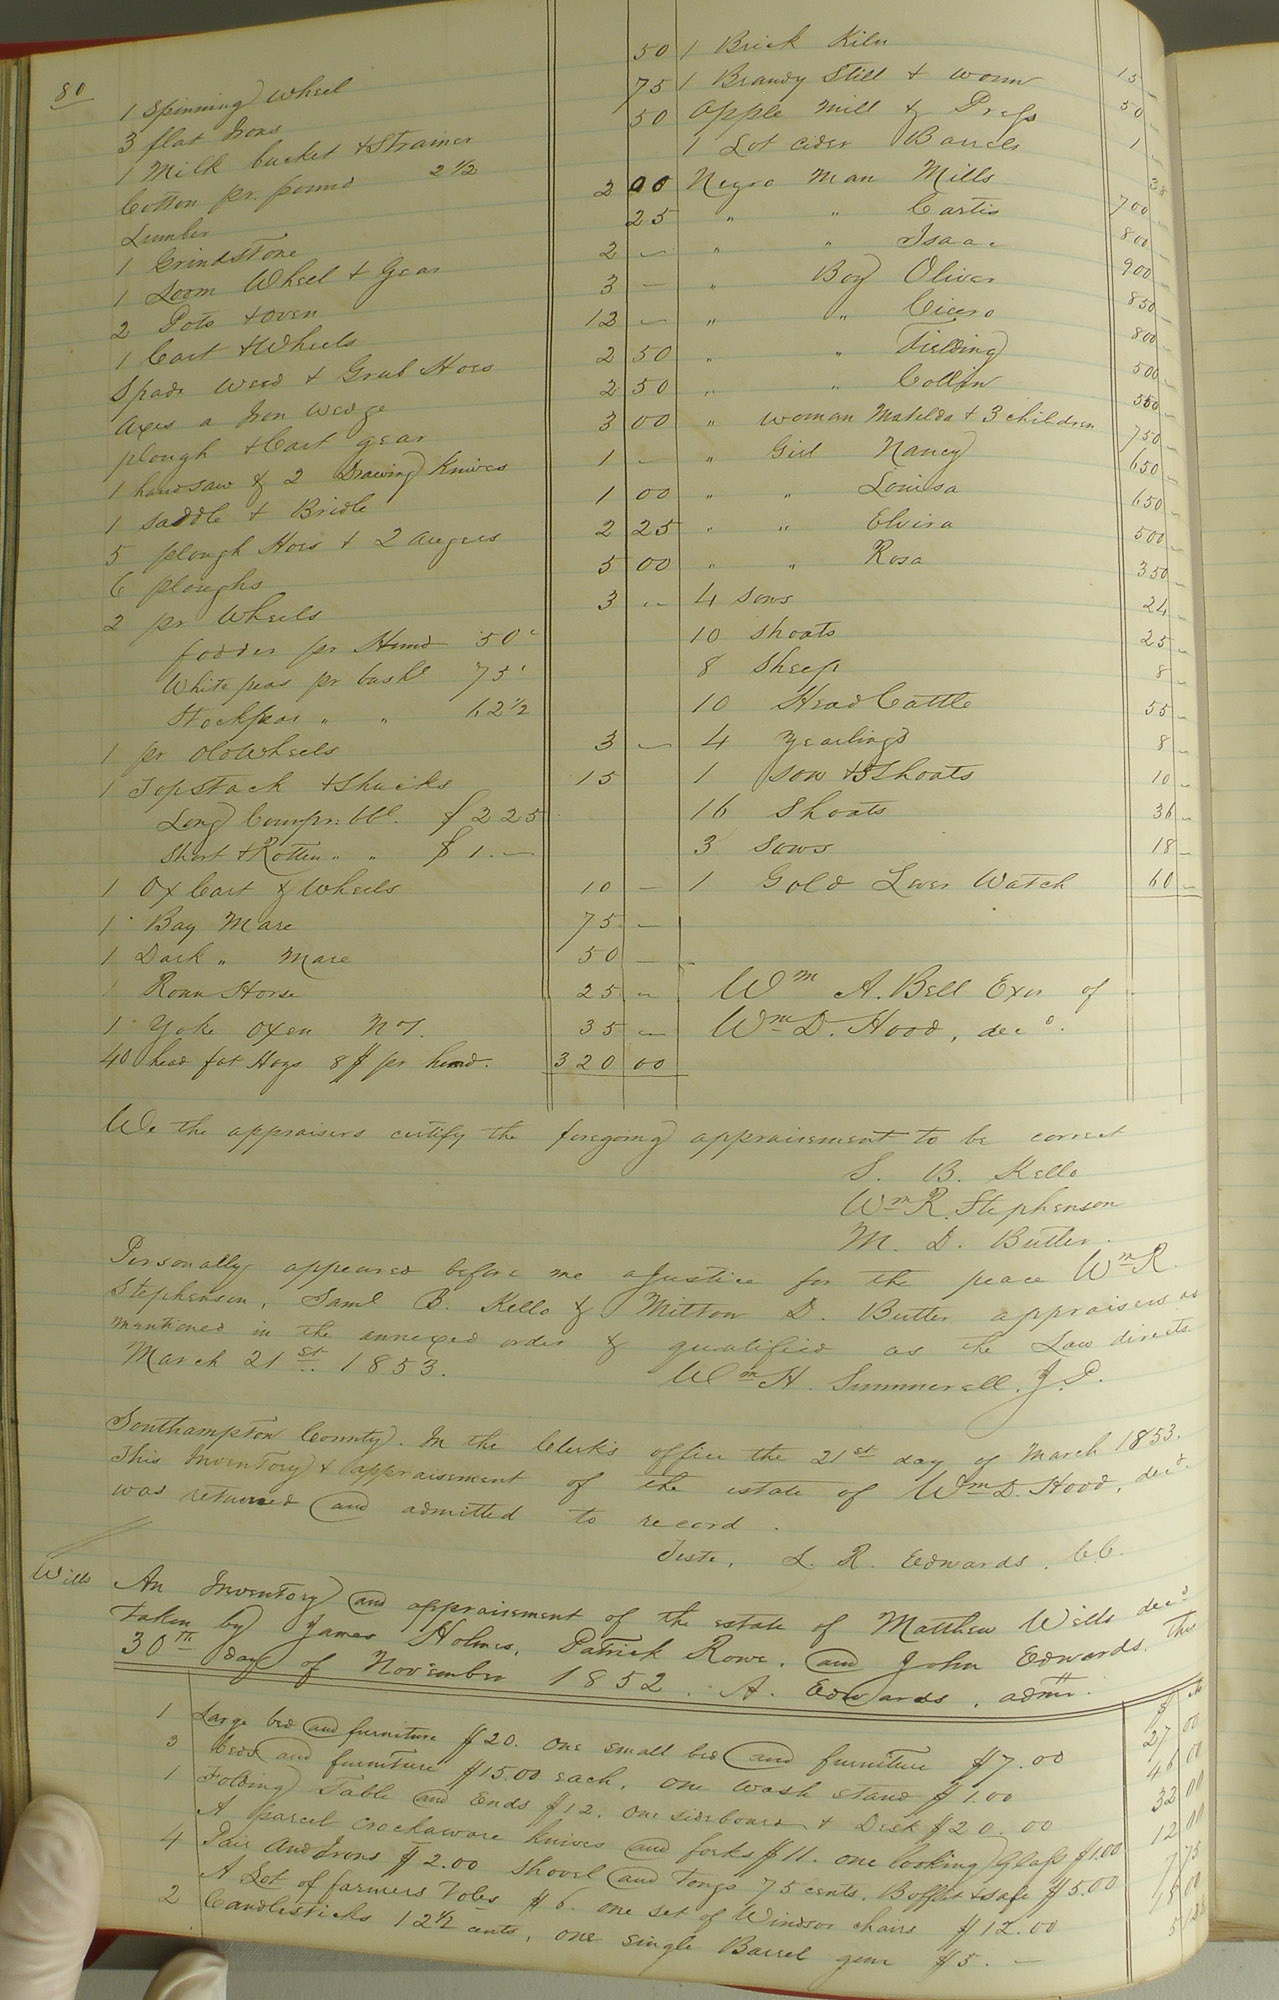 80
1 Spinning Wheel 50
3 flat Irons 75
1 Milk bucket & Strainer 50
Cotton pr. pound 2 1/2
Lumber 2 00
1 Grindstone 25
1 Loom Wheel & Gear 2 —
2 Pots & oven 3 —
1 Cart & Wheels 12 —
Spade Weed & Grub Hoes 2 50
Axes a Iron Wedge 2 50
plough & Cart gear 3 00
1 handsaw & 2 Drawing Knives 1 —
1 saddle & Bridle 1 00
5 plough Hoes & 2 augers 2 25
6 ploughs 5 00
2 pr Wheels 3 —
fodder pr Hund 50c
White peas pr bush 75c
Stock peas " " 62 1/2
1 pr old Wheels 3 —
1 Top Stack & Shucks 15
Long Corn pr. bbl. $2 25
Short & Rotten " " $1. —
1 Ox Cart & Wheels 10 —
1 Bay Mare 75 —
1 Dark " Mare 50 —
1 Roan Horse 25 —
1 Yoke Oxen 35 —
40 head fat Hogs 8$ pr head. 320 00
1 Brick Kiln 15 —
1 Brandy Still & worm 50 —
Apple Mill & Press 1 —
1 Lot cider Barrels
Negro Man Mills 700 —
" " Curtis 800 —
" " Isaac 900 —
" Boy Oliver 850 —
" " Cicero 800 —
" " Fielding 500 —
" " Collin 550 —
" woman Matilda & 3 children 750 —
" Girl Nancy 650 —
" " Louisa 650 —
" " Elvira 500 —
" " Rosa 350 —
4 sows 24 —
10 shoats 25 —
8 sheep 8 —
10 Head Cattle 55 —
4 yearlings 8 —
1 sow & 5 Shoats 10 —
16 Shoats 36 —
3 Sows 18 —
1 Gold Lever Watch 60 —
Wm A. Bell Exor of
Wm D. Hood, decd.
We the appraisers certify the foregoing appraisement to be correct
S. B. Kello
Wm R. Stephenson
M. D. Butler.
Personally appeared before me a Justice for the peace Wm R.
Stephenson, Saml B. Kello & Milton D. Butler appraisers as
mentioned in the annexed order & qualified as the Law directs
March 21st. 1853. Wm H. Summerell, J.P.
Southampton County. In the Clerk's office the 21st day of March 1853.
This Inventory & appraisement of the estate of Wm D. Hood, decd.
was returned and admitted to record.
Teste, L. R. Edwards, C.C.
Wills
An Inventory and appraisement of the estate of Matthew Wills decd
Taken by James Holmes, Patrick Rowe, and John Edwards, this
30th day of November 1852. A. Edwards, admr.
1 Large bed and furniture $20. one small bed and furniture $7.00 27 00
3 beds and furniture $15.00 each, one wash stand $1.00 46 00
1 Folding Table and Ends $12. one sideboard & Desk $20.00 32 00
A parcel Crockaware knives and forks $11. one looking Glass $1.00 12 00
4 Pair AndIrons $2.00 Shovel and Tongs 75 cents, Boffet & safe $5.00 7 75
A Lot of farmers Toles $6. one set of Windsor chairs $12.00 18 00
2 Candlesticks 12 1/2 cents, one single Barrel gun $5. — 5 12 1/2